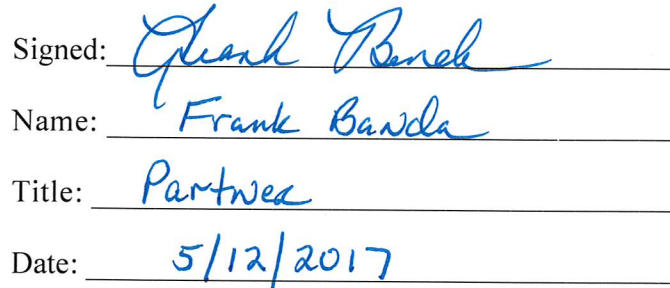 Signed: Frank Banda
Name: Frank Banda
Title: Partner
Date: 5/12/2017